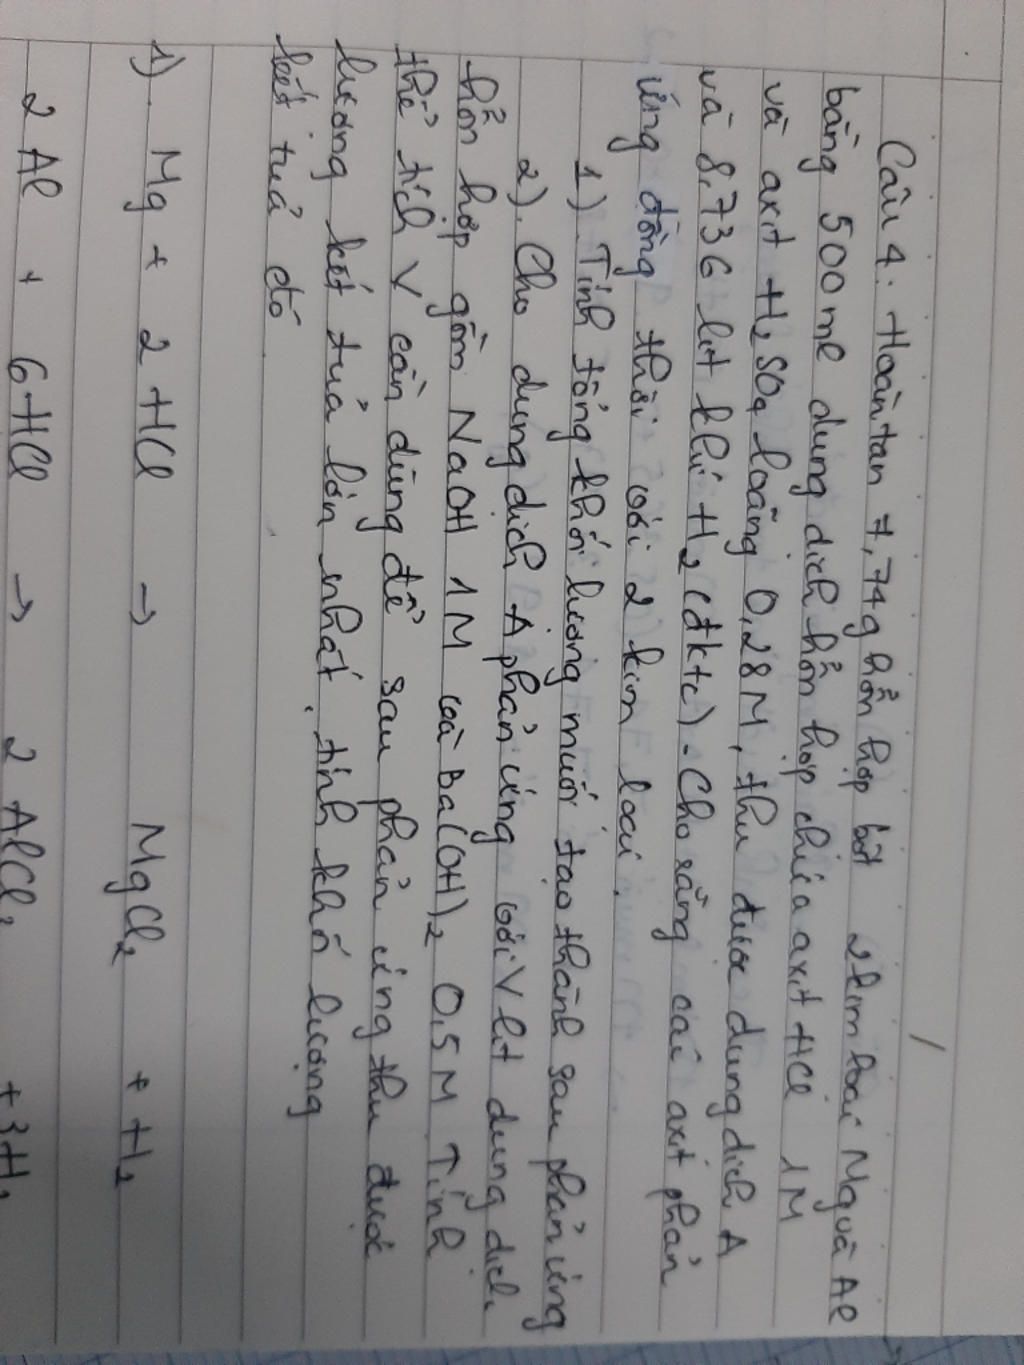 Câu 4. Hoàn tan 7,74g hỗn hợp bột 2 kim loại Mg và Al
bằng 500ml dung dịch hỗn hợp chứa axit HCl 1M
và axit H₂SO₄ loãng 0,28M, thu được dung dịch A
và 8,736 lít khí H₂ (đktc). Cho rằng các axit phản
ứng đồng thời với 2 kim loại.
1). Tính tổng khối lượng muối tạo thành sau phản ứng
2). Cho dung dịch A phản ứng với V lít dung dịch
hỗn hợp gồm NaOH 1M và Ba(OH)₂ 0,5M Tính
thể tích V cần dùng để sau phản ứng thu được
lượng kết tủa lớn nhất, tính khối lượng
kết tủa đó
1) Mg + 2HCl → MgCl₂ + H₂
2Al + 6HCl → 2AlCl₃ + 3H₂